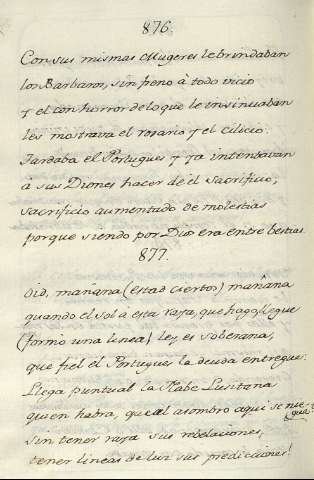 876.
Con sus mismas Mugeres le brindaban
los Barbaros, sin freno à todo vicio
y el con horror de lo que le insinuaban
les mostrava el rosario y el cilicio.
Tardaba el Portugues y ya intentavan
à sus Dioses hacer de él sacrificio;
sacrificio aumentado de molestias
porque siendo por Dios era entre bestias.
877.
Oid, mañana (estad ciertos) mañana
quando el sol a esta raya, que hago, llegue
(formó una linea) ley es soberana,
que fiel el Portugues la deuda entregue.
Llega puntual la Nabe Lusitana
quien habra, que al asombro aqui se niegue
sin tener raya sus revelaciones,
tener lineas de luz sus predicciones!